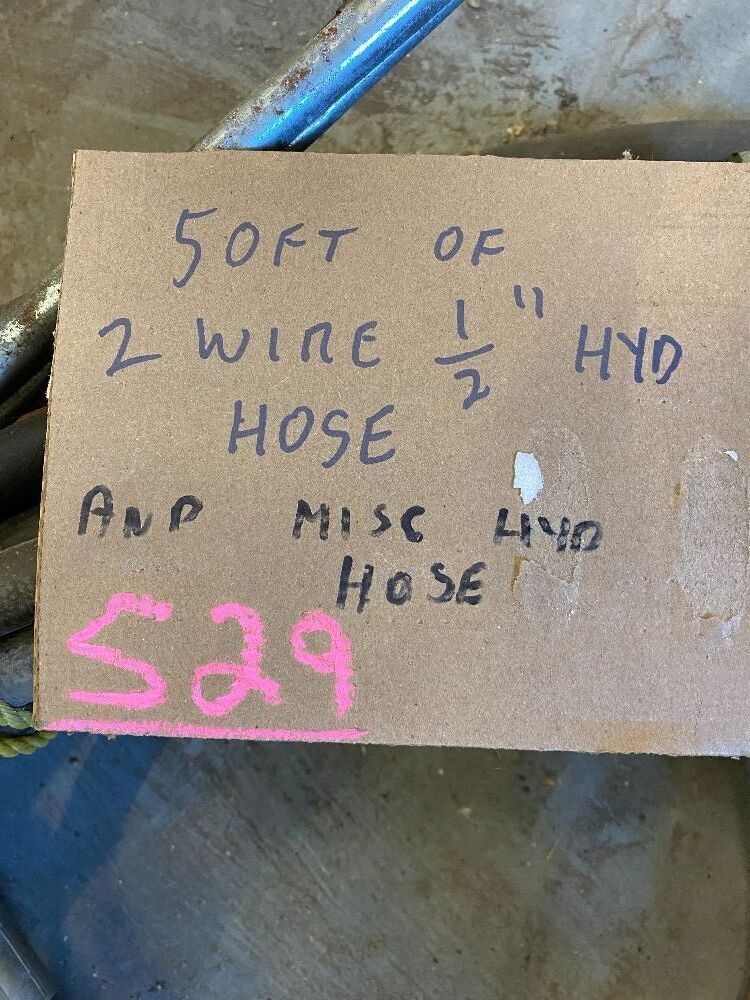 50FT OF
2 WIRE 1/2" HYD
HOSE
AND MISC HYD
HOSE
529